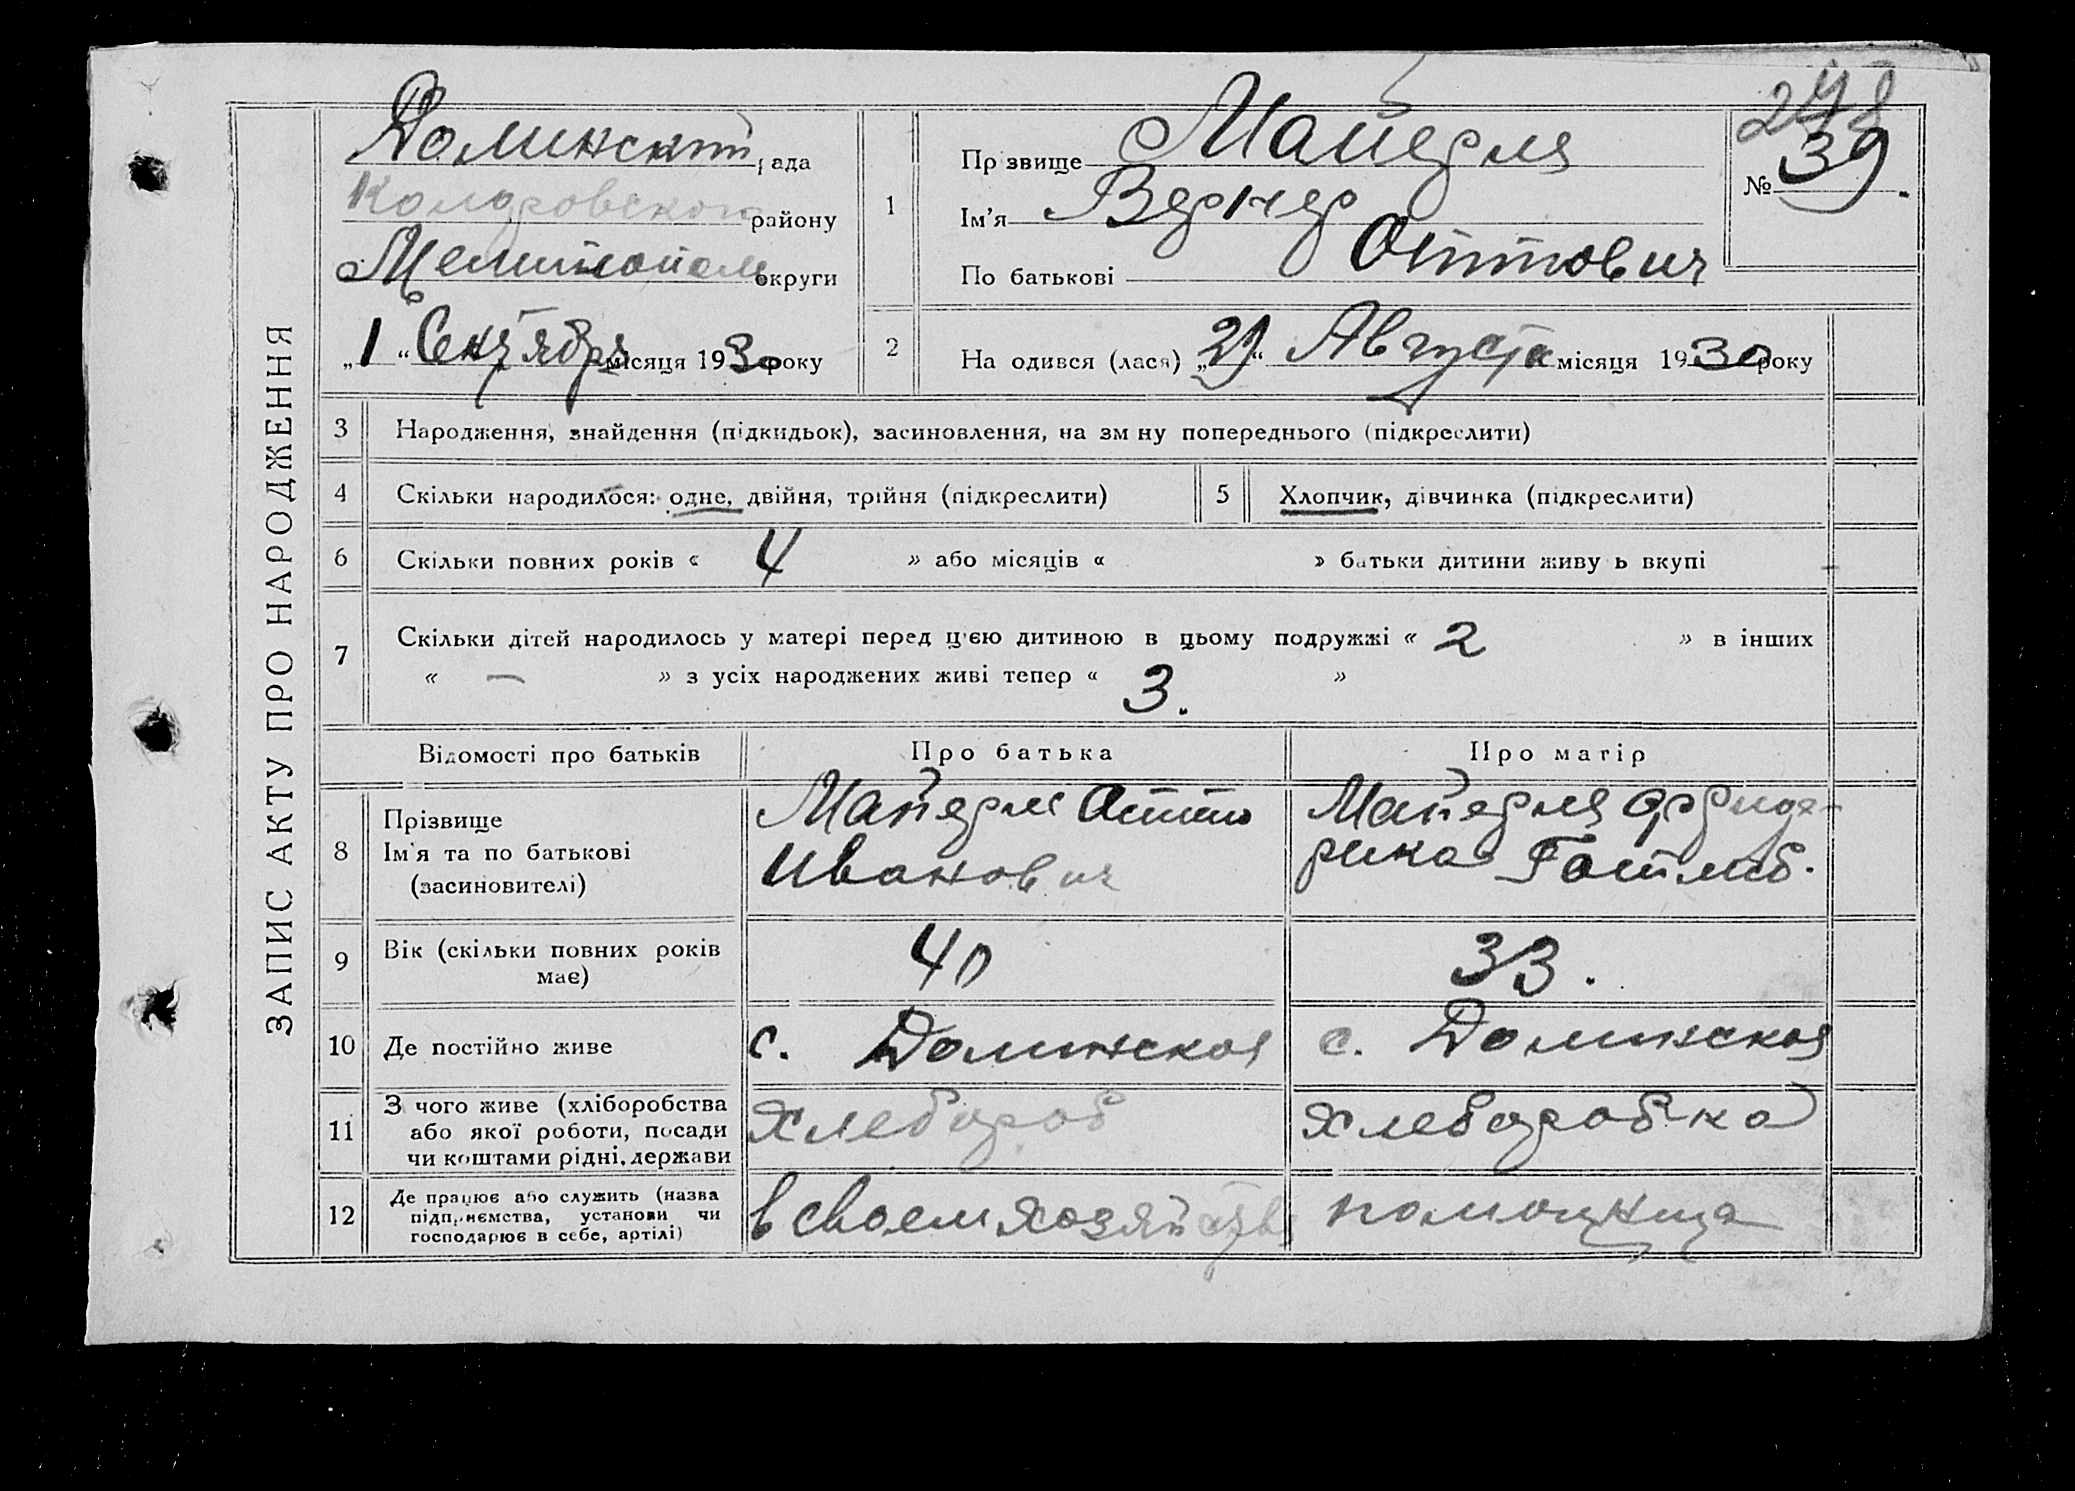 ЗАПИС АКТУ ПРО НАРОДЖЕННЯ
248
№ 39.
Долинский рада
Коларовского району
Мелитополь округи
„1“ Сентября місяця 1930 року
1
Прізвище Майерля
Ім'я Вернер
По батькові Оттович
2 Народився (лася) „29“ Августа місяця 1930 року
3 Народження, знайдення (підкидьок), засиновлення, на зміну попереднього (підкреслити)
4 Скільки народилося: одне, двійня, трійня (підкреслити)
5 Хлопчик, дівчинка (підкреслити)
6 Скільки повних років « 4 » або місяців « » батьки дитини живуть вкупі
7 Скільки дітей народилось у матері перед цією дитиною в цьому подружжі « 2 » в інших
« — » з усіх народжених живі тепер « 3. »
Відомості про батьків Про батька Про матір
8 Прізвище
Ім'я та по батькові
(засиновителі)
Майерля Отто
Иванович
Майерля Фриде-
рика Готлиб.
9 Вік (скільки повних років
має)
40
33.
10 Де постійно живе с. Долинская с. Долинская
11 З чого живе (хліборобства
або якої роботи, посади
чи коштами рідні, держави
Хлебороб
Хлеборобка
12 Де працює або служить (назва
підприємства, установи чи
господарює в себе, артілі)
в своем хозяйстве
помощница